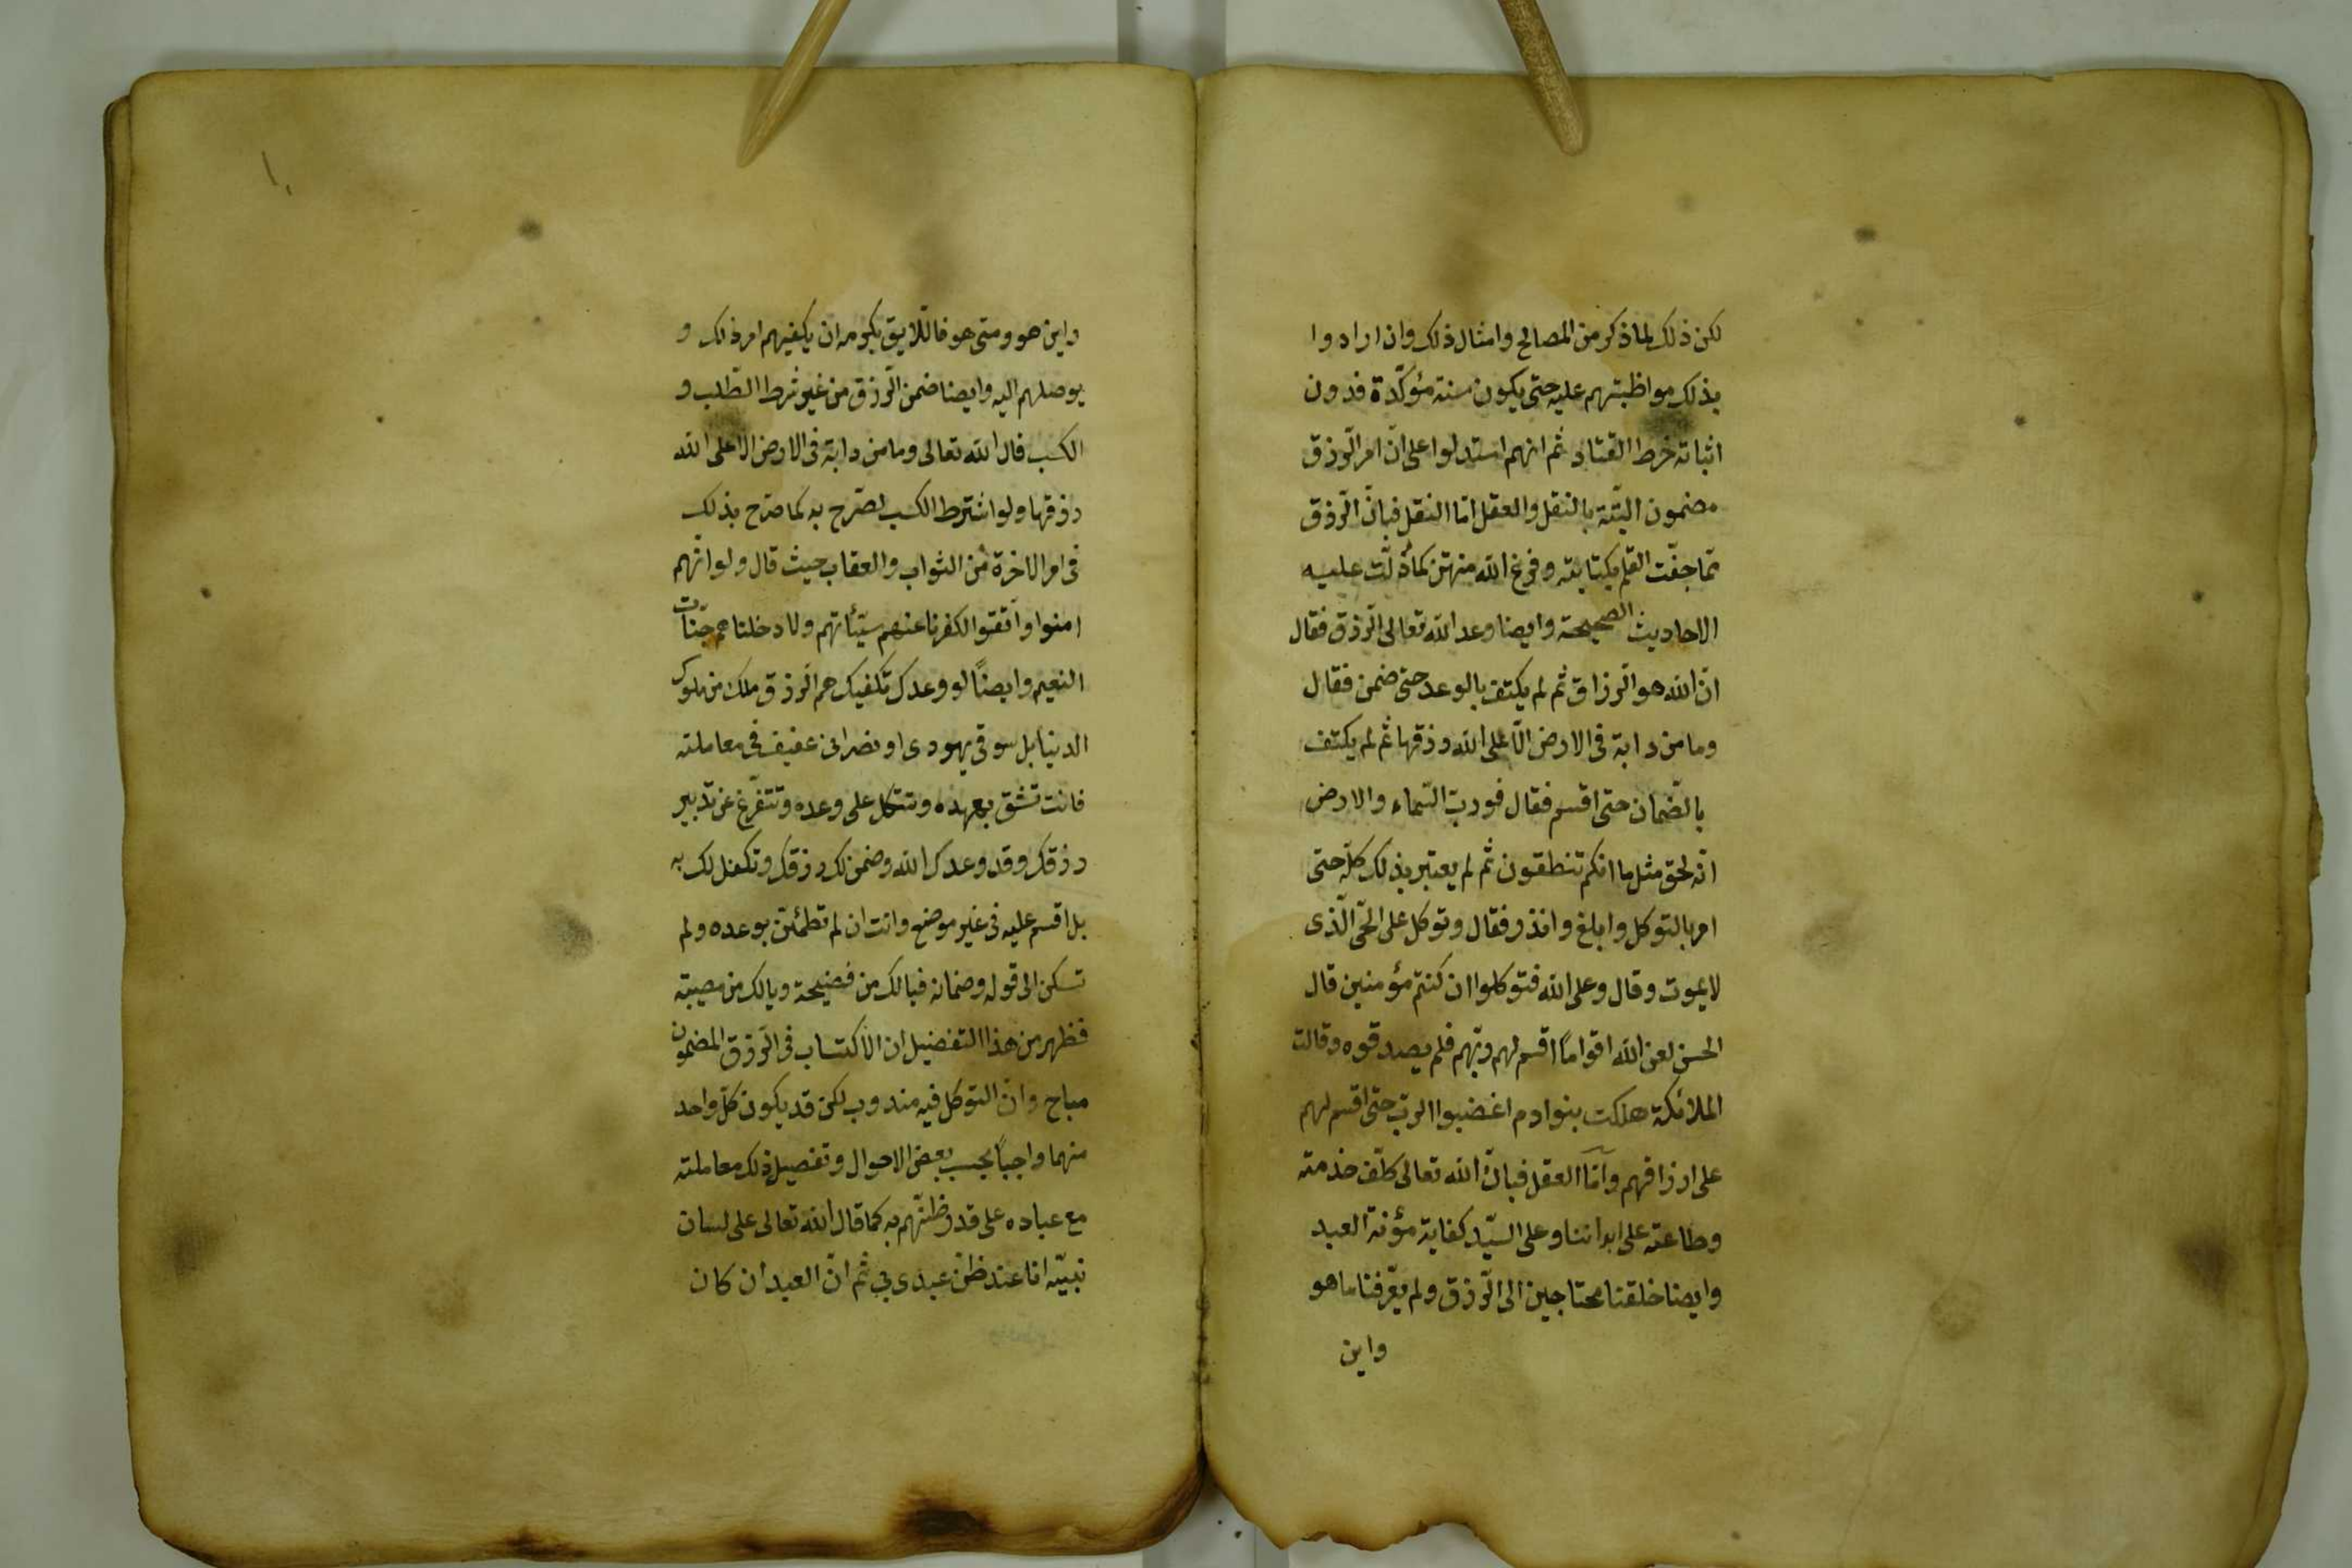 لكن ذلك لما ذكر من المصالح وامثال ذلك وان ارادوا
بذلك مواظبتهم عليه حتى يكون سنة مؤكّدة فدون
اثباته خرط القتاد ثم انهم استدلوا على انّ امر الرّزق
مضمون البتّة بالنقل والعقل امّا النقل فبانّ الرّزق
ممّا جفّت القلم بكتابته وفرغ الله منه كما دلّت عليه
الاحاديث الصحيحة وايضا وعد الله تعالى الرّزق فقال
انّ الله هو الرزاق ثم لم يكتف بالوعد حتى ضمن فقال
وما من دابة فى الارض الّا على الله رزقها ثم لم يكتف
بالضّمان حتى اقسم فقال فوربّ السّماء والارض
انّه لحق مثل ما انكم تنطقون ثم لم يعتبر بذلك كلّه حتى
امر بالتوكل وابلغ وانذر فقال وتوكل على الحّى الّذى
لا يموت وقال وعلى الله فتوكلوا ان كنتم مؤمنين قال
الحسن لعن الله اقواماً اقسم لهم ربّهم فلم يصدقوه وقالت
الملائكة هلكت بنوادم اغضبوا الربّ حتى اقسم لهم
على ارزاقهم وامّا العقل فبانّ الله تعالى كلّف خدمته
وطاعته على ابداننا وعلى السيّد كفاية مؤنة العبد
وايضا خلقنا محتاجين الى الرّزق ولم يعّرفنا ما هو
واين
واين هو ومتى هو فاللّايق بكرمه ان يكفيهم امر ذلك و
يوصلهم اليه وايضا ضمن الرّزق من غير شرط الطّلب و
الكسب قال الله تعالى وما من دابة فى الارض الا على الله
رزقها ولو اشترط الكسب لصّرح به كما صّرح بذلك
فى امر الاخرة من الثواب والعقاب حيث قال ولو انّهم
امنوا واتّقوا لكفرنا عنهم سيّئاتهم ولادخلناهم جنّات
النعيم وايضاً لو وعدك تكفيك هم الرزق ملك من ملوك
الدنيا بل سوقى يهودى او نصرانى عفيف فى معاملته
فانت تثق بعهده وتتكل على وعده وتتفرّغ عن تدبير
رزقك وقد وعدك الله وضمن لك رزقك وتكفل لك به
بل اقسم عليه فى غير موضع وانت ان لم تطمئنّ بوعده ولم
تسكن الى قوله وضمانه فيالك من فضيحة ويالك من مصيبة
فظهر من هذا التفصيل ان الاكتساب فى الرّزق المضمون
مباح وانّ التوكل فيه مندوب لكن قد يكون كلّ واحد
منهما واجباً بحسب بعض الاحوال وتفصيل ذلك معاملته
مع عباده على قدر ظنّهم به كما قال الله تعالى على لسان
نبيّه انا عند ظنّ عبدى بي ثم انّ العبد ان كان
١٠